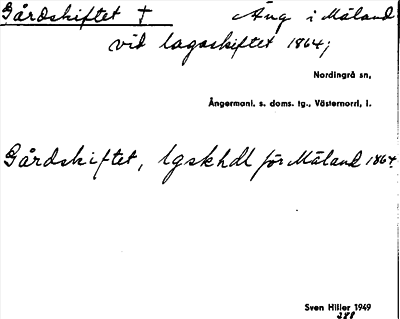 Gårdskiftet † Äng i Måland
vid lagaskiftet 1864;
Nordingrå sn,
Ångermanl. s. doms. tg., Västernorrl, l.
Gårdskiftet, lgskhdl för Måland 1864.
Sven Hiller 1949
388